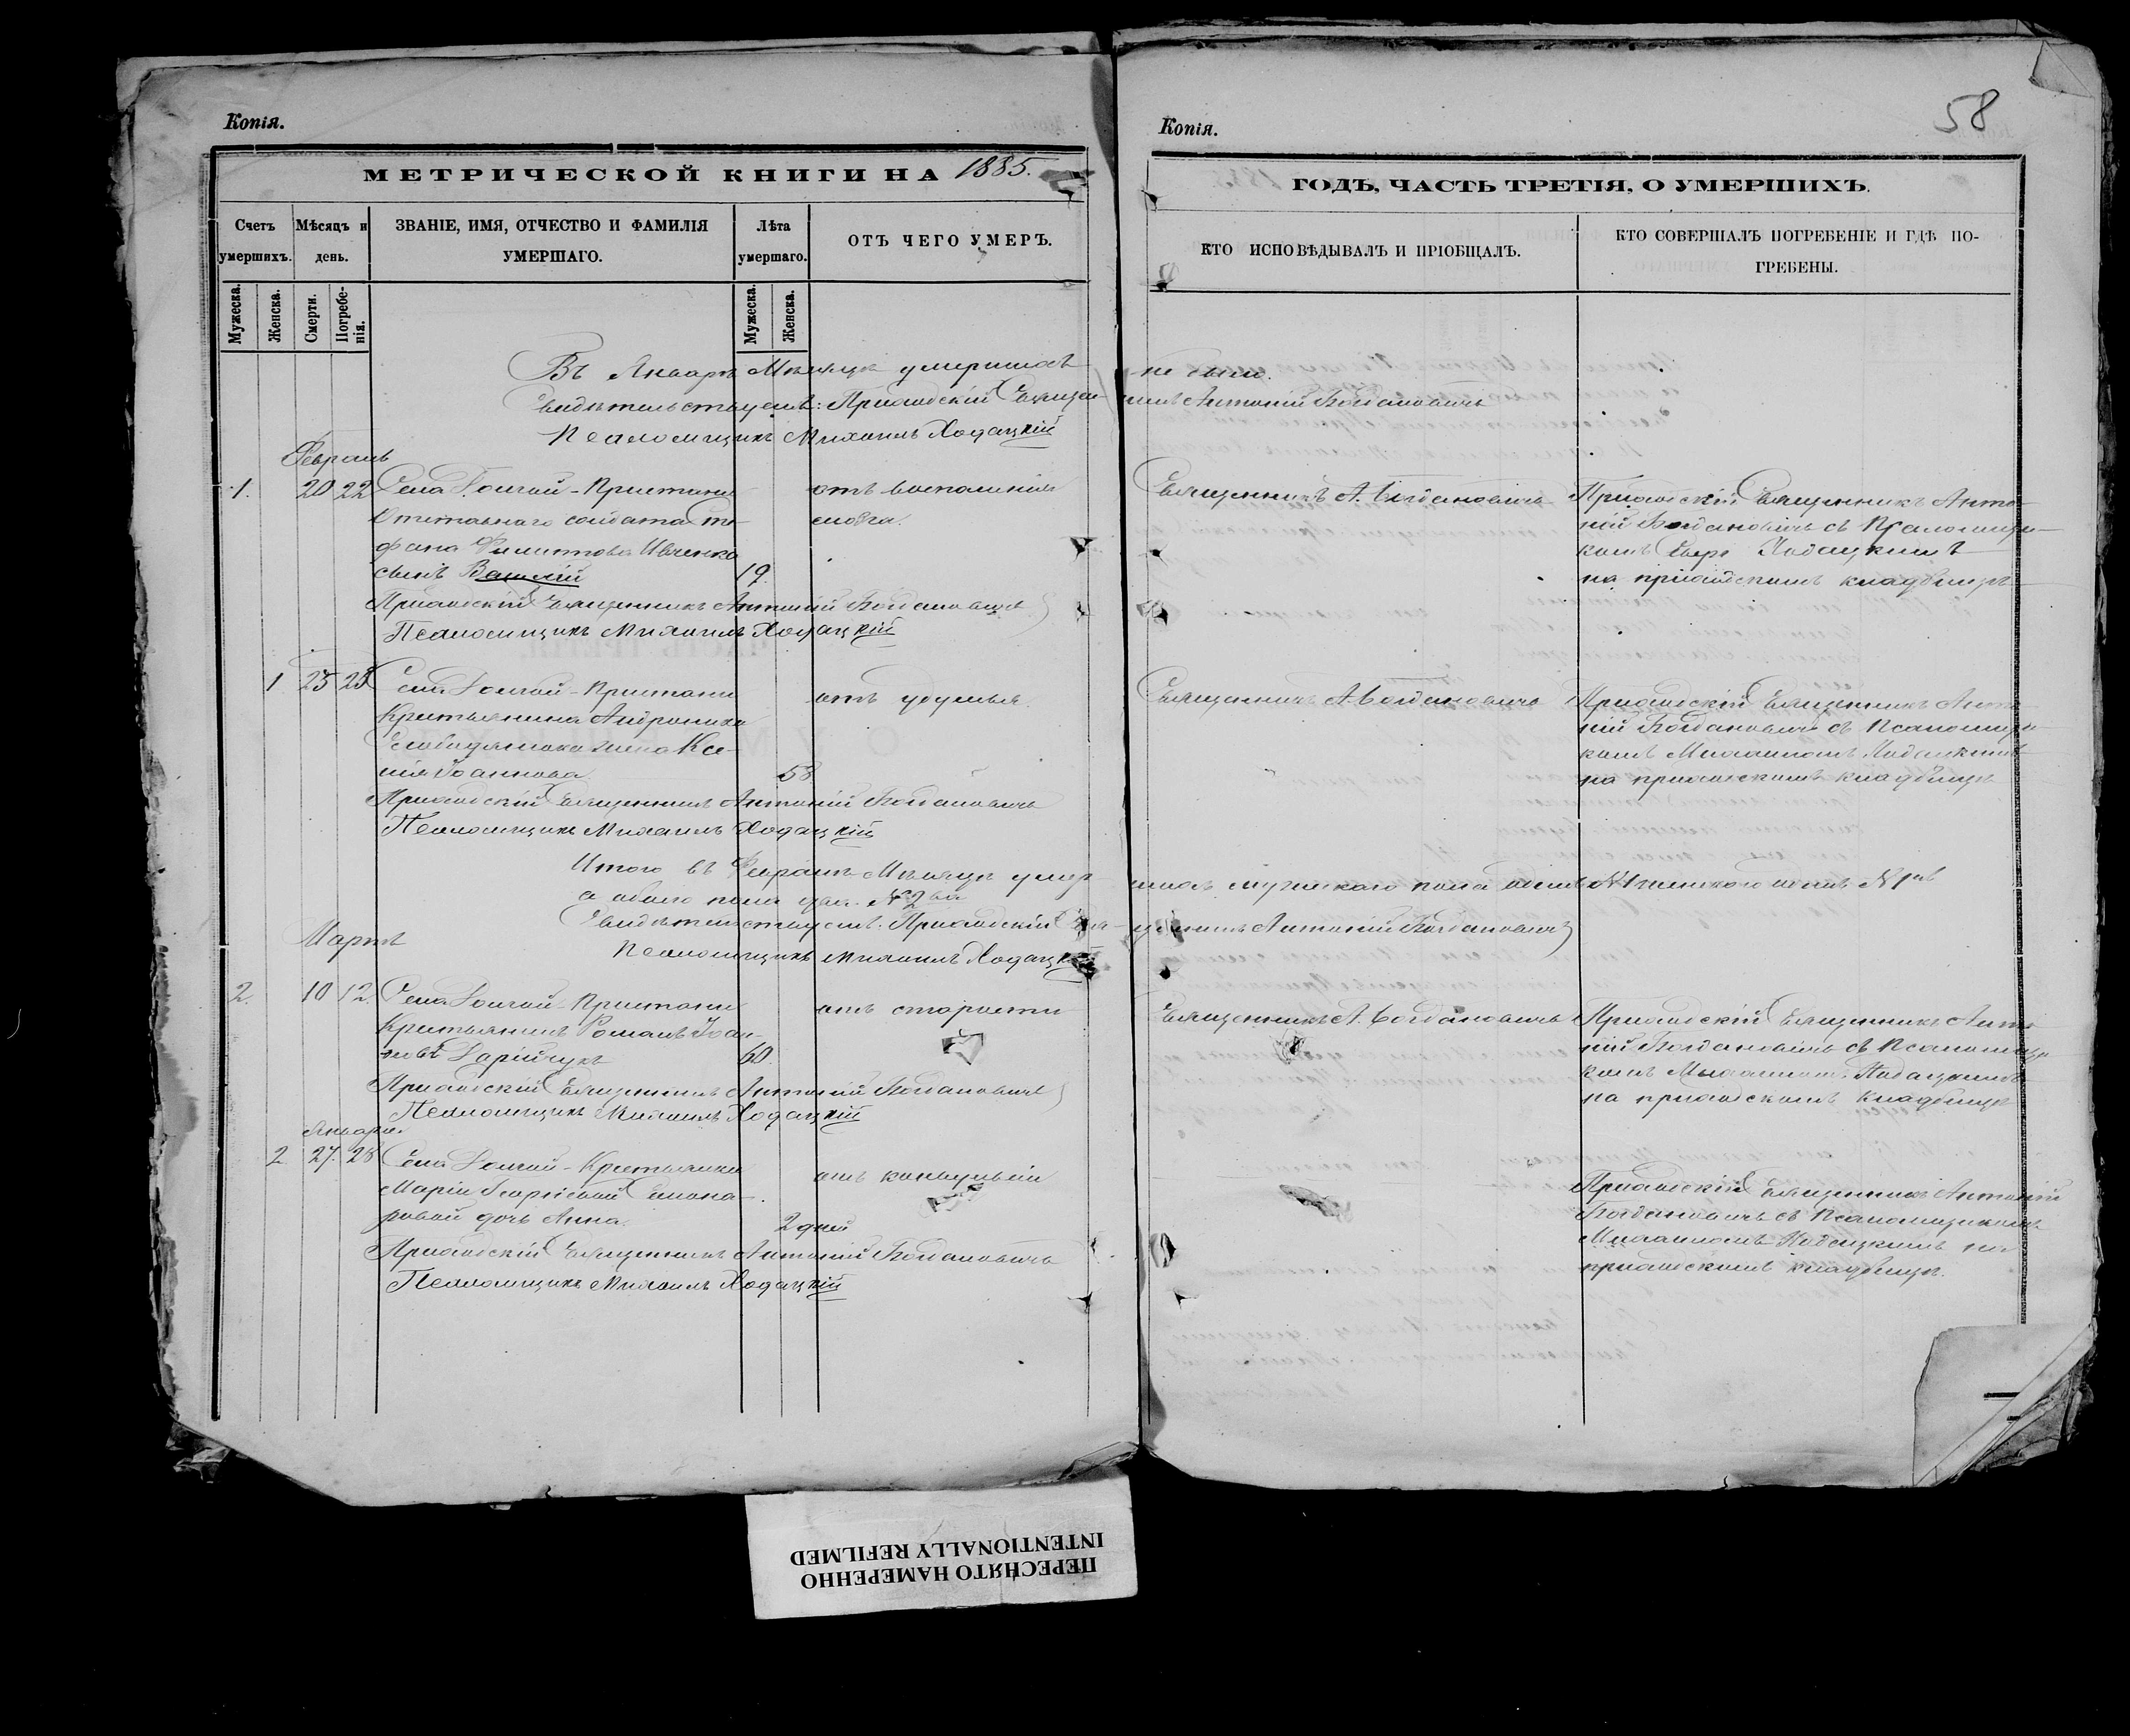 Копія.
МЕТРИЧЕСКОЙ КНИГИ НА 1885.
Счетъ умершихъ.
Мѣсяцъ и день.
ЗВАНІЕ, ИМЯ, ОТЧЕСТВО И ФАМИЛІЯ УМЕРШАГО.
Лѣта умершаго.
ОТЪ ЧЕГО УМЕРЪ.
Мужеска.
Женска.
Смерти.
Погребе-
нія.
Мужеска.
Женска.
Въ Январѣ Мѣсяцѣ умершихъ
Свидѣтельствуемъ: Приходскій Священ-
Псаломщикъ Михаилъ Ходацкій
Февраль
1. 20 22 Села Долгой-Пристани
Отставнаго солдата Сте-
фана Филиппова Ивченка
сынъ Василій 19.
отъ воспаленія
мозга.
Приходскій Священникъ Антоній Богдановичъ
Псаломщикъ Михаилъ Ходацкій
1 23 25 Села Долгой-Пристани
Крестьянина Андроника
жена Ксе-
нія Іоаннова 58
отъ удушья.
Приходскій Священникъ Антоній Богдановичъ
Псаломщикъ Михаилъ Ходацкій
Итого въ Февралѣ Мѣсяцѣ умер
а обоего пола два № 2ва
Свидѣтельствуемъ: Приходскій Свя-
Псаломщикъ Михаилъ Ходацкій
Мартъ
2. 10 12. Села Долгой-Пристани
Крестьянинъ Романъ Іоан-
новъ Дарійчукъ 60
отъ старости
Приходскій Священникъ Антоній Богдановичъ
Псаломщикъ Михаилъ Ходацкій
Января
2 27. 28 Села Долгой- Крестьянки
Маріи Георгіевой
дочь Анна. 2 дней
отъ конвульсій
Приходскій Священникъ Антоній Богдановичъ
Псаломщикъ Михаилъ Ходацкій
Копія.
58
ГОДЪ, ЧАСТЬ ТРЕТІЯ, О УМЕРШИХЪ.
КТО ИСПОВѢДЫВАЛЪ И ПРІОБЩАЛЪ.
КТО СОВЕРШАЛЪ ПОГРЕБЕНІЕ И ГДѢ ПО-
ГРЕБЕНЫ.
не было.
никъ Антоній Богдановичъ
Священникъ А. Богдановичъ
Приходскій Священникъ Анто-
ній Богдановичъ съ Псаломщи-
комъ Ходацкимъ
на приходскомъ кладбищѣ
Священникъ А. Богдановичъ
Приходскій Священникъ Анто-
ній Богдановичъ съ Псаломщи-
комъ Михаиломъ Ходацкимъ
на приходскомъ кладбищѣ
шихъ мужескаго пола № 1 женскаго № 1
щенникъ Антоній Богдановичъ
Священникъ А. Богдановичъ
Приходскій Священникъ Анто-
ній Богдановичъ съ Псаломщи-
комъ Михаиломъ Ходацкимъ
на приходскомъ кладбищѣ
Приходскій Священникъ Антоній
Богдановичъ съ Псаломщикомъ
Михаиломъ Ходацкимъ на
приходскомъ кладбищѣ.
ПЕРЕСНЯТО НАМЕРЕННО
INTENTIONALLY REFILMED